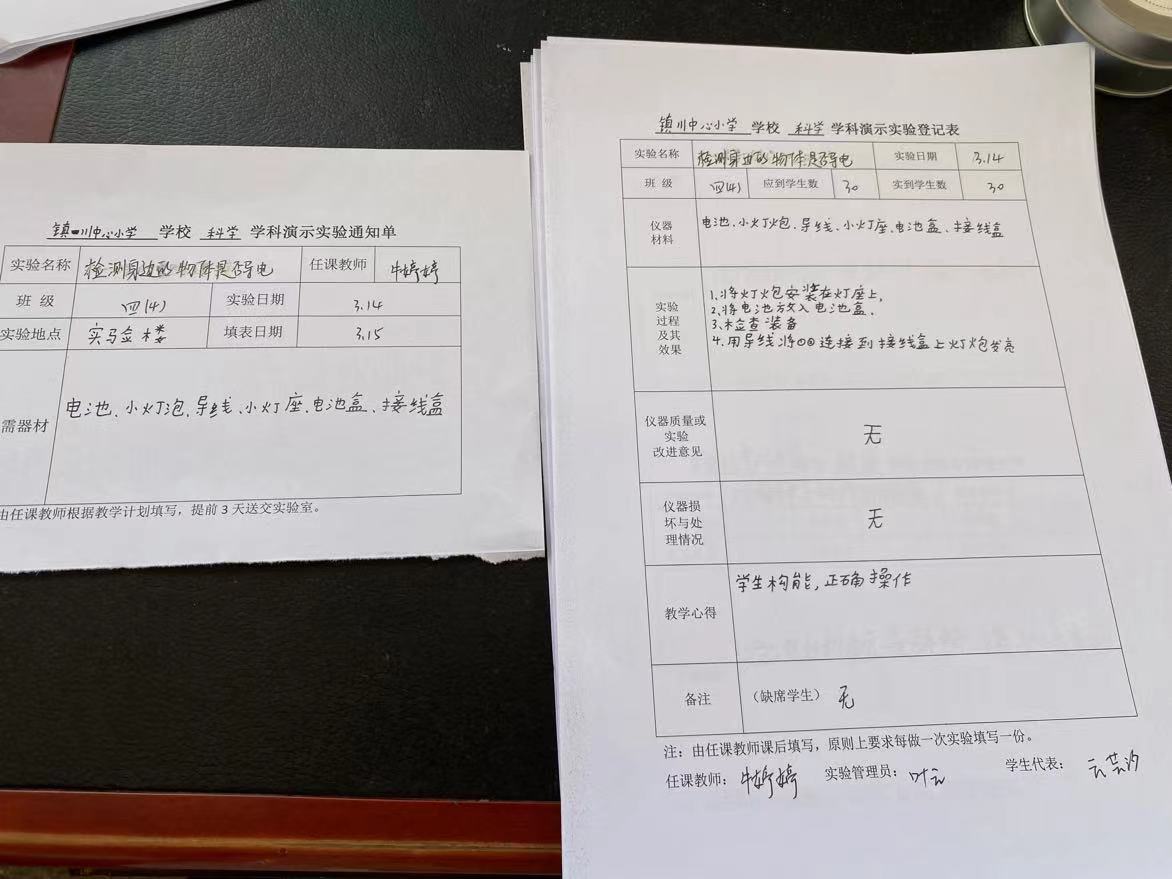 镇川中心小学 学校 科学 学科演示实验通知单
实验名称 检测身边的物体是否导电 任课教师 牛婷婷
班 级 四(4) 实验日期 3.14
实验地点 实验楼 填表日期 3.15
需器材 电池、小灯泡、导线、小灯座、电池盒、接线盒
由任课教师根据教学计划填写，提前 3 天送交实验室。
镇川中心小学 学校 科学 学科演示实验登记表
实验名称 检测身边的物体是否导电 实验日期 3.14
班 级 四(4) 应到学生数 30 实到学生数 30
仪器
材料
电池、小灯炮、导线、小灯座、电池盒、接线盒
实验
过程
及其
效果
1.将灯炮安装在灯座上,
2.将电池放入电池盒.
3.检查装备
4.用导线将 连接到接线盒上灯炮发亮
仪器质量或
实验
改进意见
无
仪器损
坏与处
理情况
无
教学心得
学生构能,正确操作
备注 （缺席学生） 无
注：由任课教师课后填写，原则上要求每做一次实验填写一份。
任课教师： 牛婷婷 实验管理员： 叶云 学生代表：